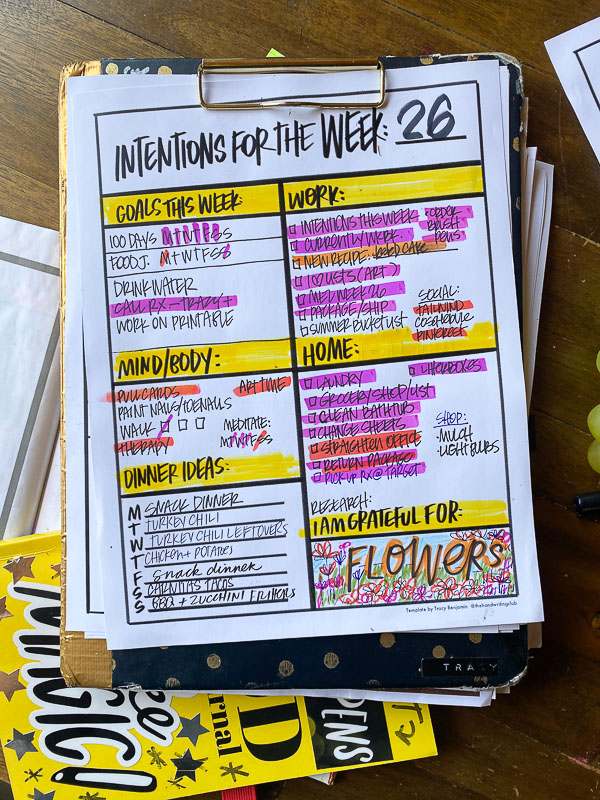 INTENTIONS FOR THE WEEK: 26
GOALS THIS WEEK:
100 DAYS M T W T F S S
FOOD J. M T W T F S S
DRINK WATER
CALL RX — TRACY +
WORK ON PRINTABLE
WORK:
INTENTIONS THIS WEEK
CURRENTLY WK BK.
NEW RECIPE:
I ♡ LISTS (ART)
MED WEEK 26
PACKAGE/SHIP
SUMMER BUCKET LIST
ORDER
BRUSH
PENS
SOCIAL:
TAILWIND
COSCHEDULE
PINTEREST
MIND/BODY:
PULL CARDS
ART TIME
PAINT NAILS/TOENAILS
WALK
THERAPY
MEDITATE:
M T W T F S S
HOME:
LAUNDRY
GROCERY SHOP/LIST
CLEAN BATHTUB
CHANGE SHEETS
STRAIGHTEN OFFICE
RETURN PACKAGE
PICK UP RX @ TARGET
LITTERBOXES
SHOP:
MULCH
LIGHTBULBS
RESEARCH:
DINNER IDEAS:
M SNACK DINNER
T TURKEY CHILI
W TURKEY CHILI LEFTOVERS
T CHICKEN + POTATOES
F Snack dinner
S CARNITAS TACOS
S BBQ + ZUCCHINI FRITTERS
I AM GRATEFUL FOR:
FLOWERS
Template by Tracy Benjamin @thehandwritingclub
TRACY
MAGIC!